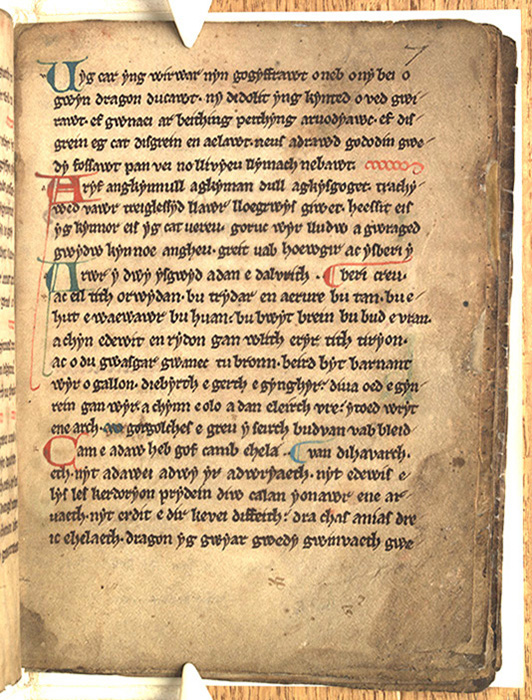 Uyg car yng wirwar nyn gogyffrawt o neb ony bei o
gwyn dragon ducawt. ny didolit yng kynted o ved gwi
rawt. ef gwnaei ar beithing perthyng aruodyawc. ef dis
grein eg cat disgrein en aelawt. neus adrawd gododin gwe
dy fossawt pan vei no llivyeu llymach nebawt.
Aryf angkynnull agkyman dull agkysgoget. trachy
wed vawr treiglessyd llawr lloegrwys giwet. heessit eis
yg kynnor eis yg cat uereu. goruc wyr lludw a gwraged
gwydw kynnoe angheu. greit vab hoewgir ac ysberi y
Arwr y dwy ysgwyd adan e dalvrith. beri creu.
ac eil tith orwydan. bu trydar en aerure bu tan. bu e
hut e waewawr bu huan. bu bwyt brein bu bud e vran.
a chyn edewit en rydon gan wlith eryr tith tiryon.
ac o du gwasgar gwanec tu bronn. beird byt barnant
wyr o gallon. diebyrth e gerth e gynghyr. diua oed e gyn
rein gan wyr. a chynn e olo a dan eleirch vre. ytoed wryt
ene arch. gorgolches e greu y seirch budvan vab bleid
Cam e adaw heb gof camb ehela van dihavarch.
eth. nyt adawei adwy yr adwryaeth. nyt edewis e
lys les kerdoryon prydein diw calan yonawr ene ar
uaeth. nyt erdit e dir kevei diffeith. dra chas anias dre
ic ehelaeth. dragon yg gwyar gwedy gwinvaeth gwe